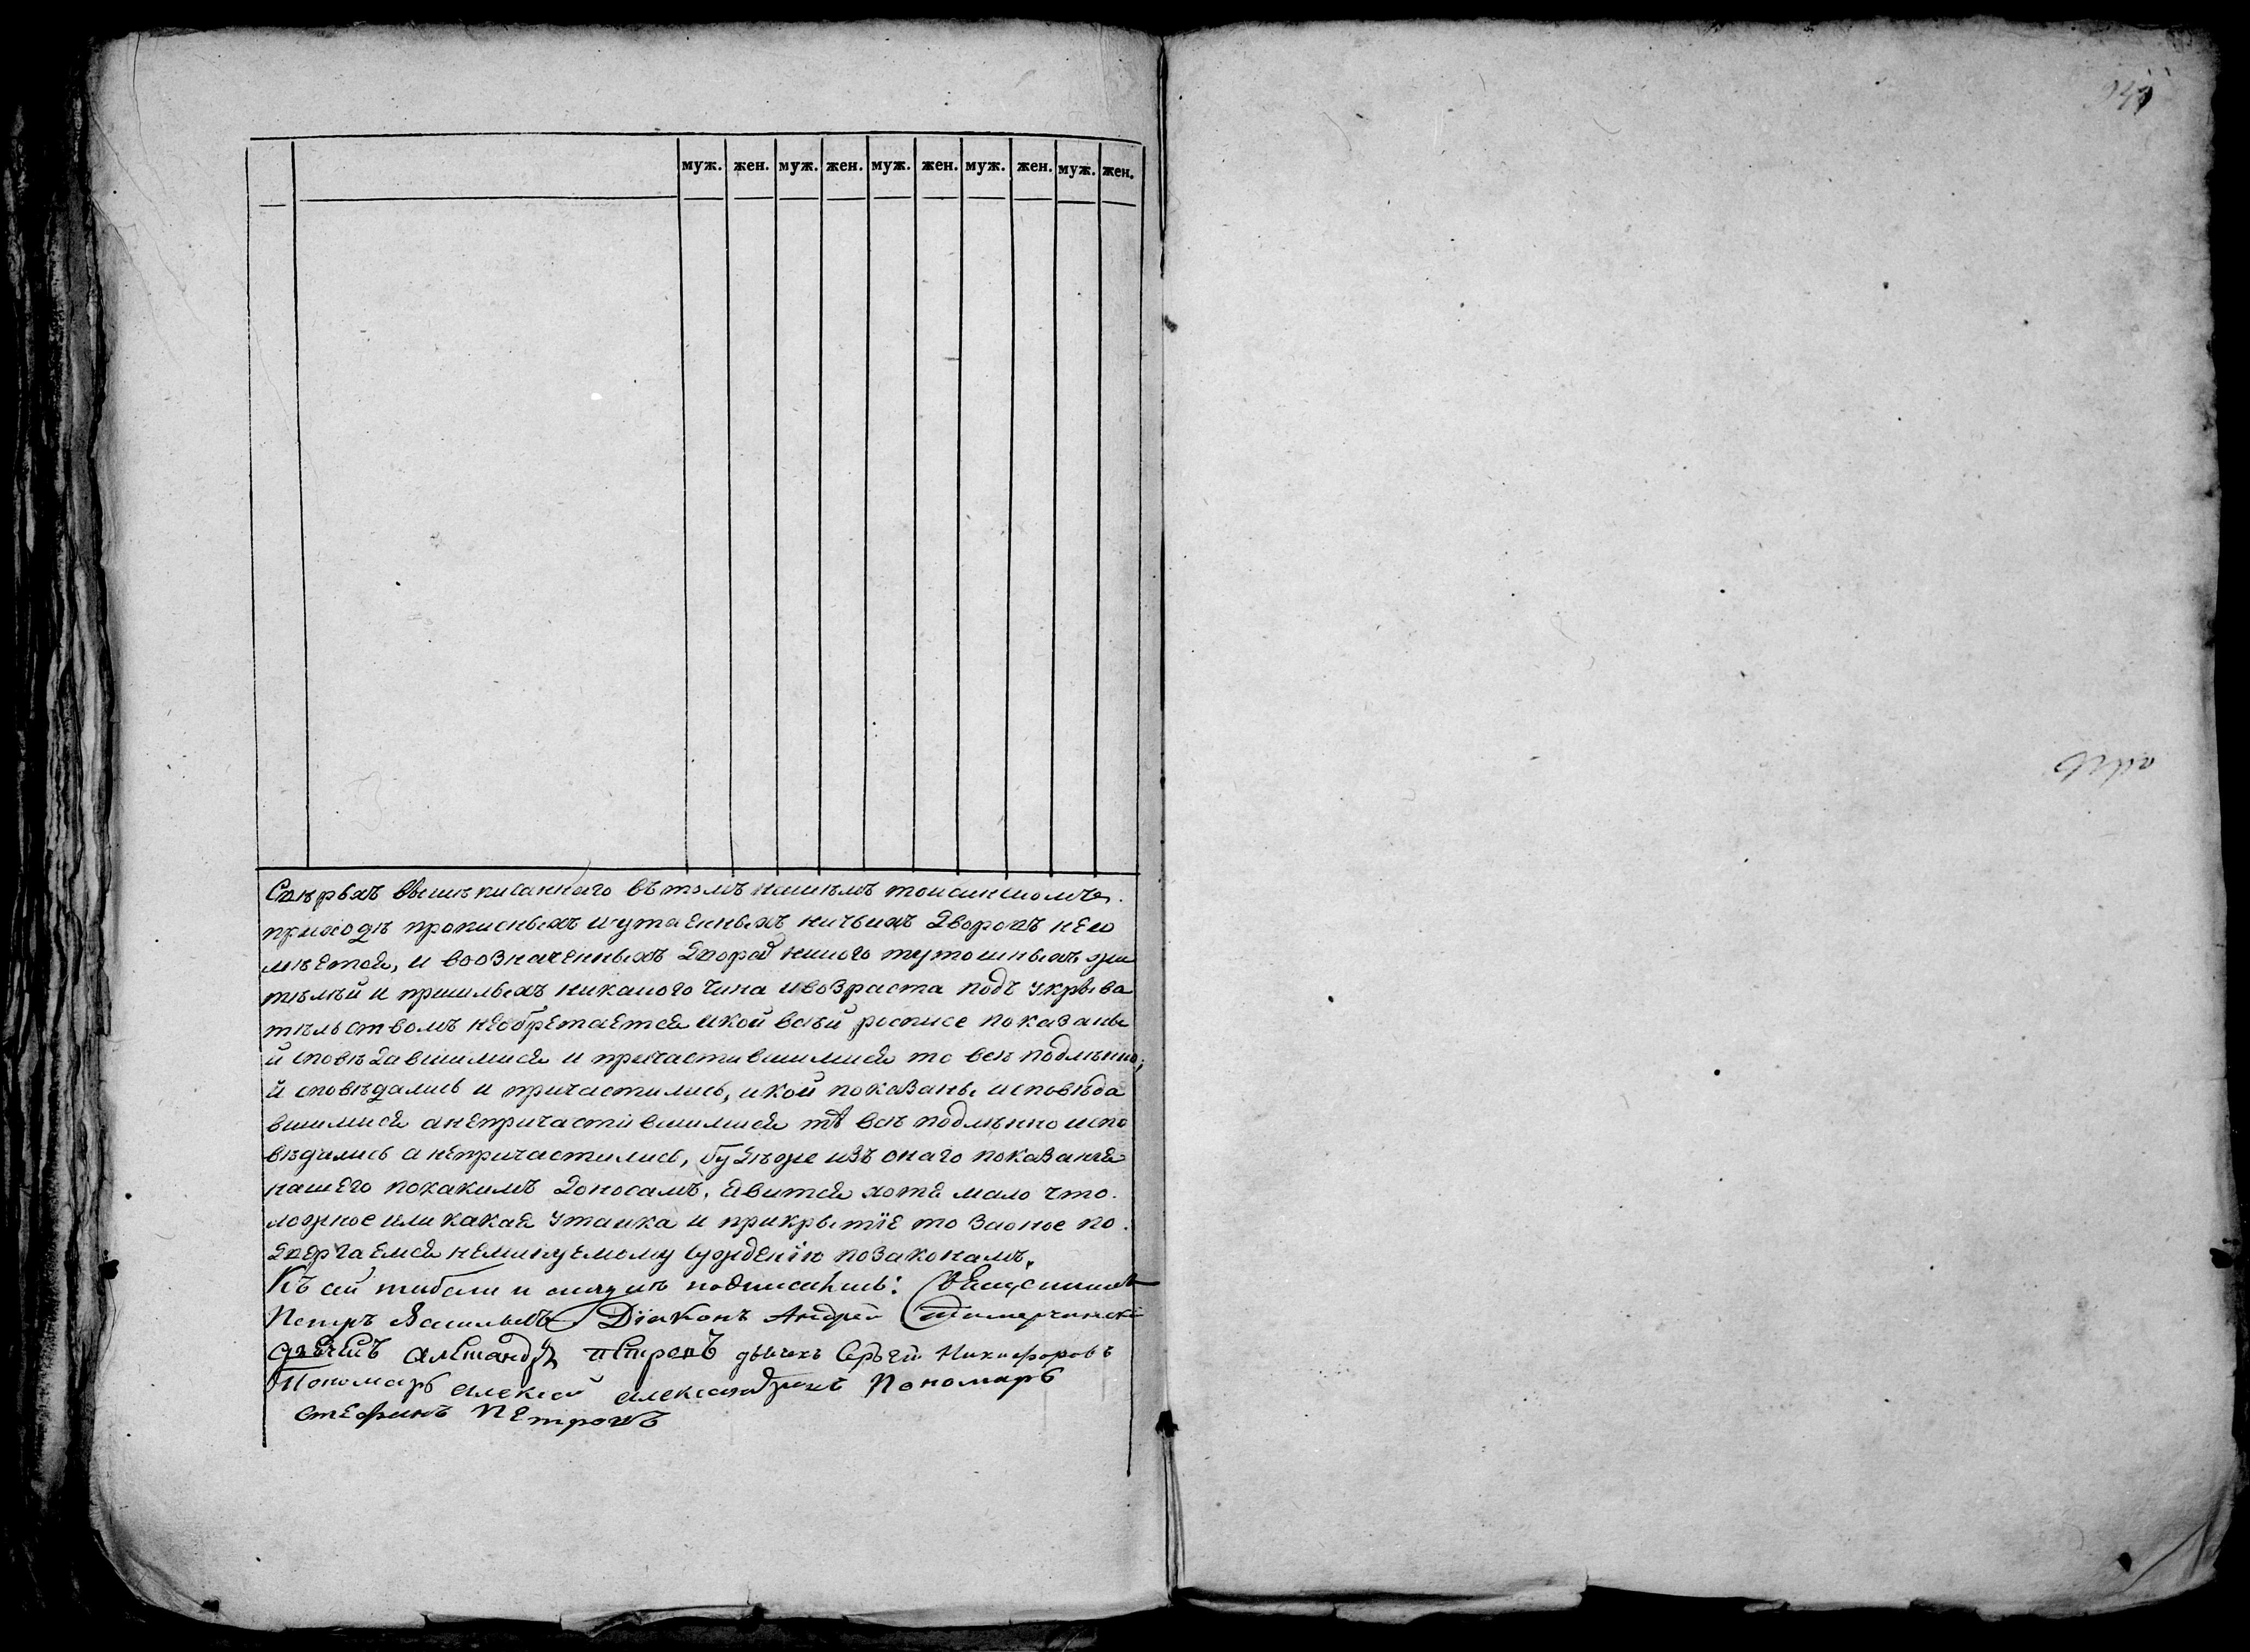 муж. жен. муж. жен. муж. жен. муж. жен. муж. жен.
Сверьхъ вышеписаннаго въ томъ нашемъ
приходѣ прописныхъ и утаенныхъ ничьихъ дворовъ не и
мѣется, и во означенныхъ дворах никого тутошныхъ жи
телѣй и пришлыхъ никакого чина и возраста подъ укрыва
тельствомъ необретается и кои в сѣй росписе показаны
и споведавшимися и причастившимися то все подлинно,
и споведались и причастились, и кои показаны исповѣда
вшимися а непричастившимися тѣ все подлинно испо
ведались а непричастились, буде же изъ онаго показания
нашего покакимъ доносамъ, явится хотя мало что
ложное или какая утаика и прикрытїе то за оное по
двергаемся неминуемому суждению по законамъ,
Къ сей табели и подписались: Священникъ
Петръ Васильевъ Діаконъ Андрей
дьячекъ Александръ Петровъ дьячекъ Сергѣй Никифоровъ
Пономарь Алексѣй Александровъ Пономарь
Стефанъ Петровъ